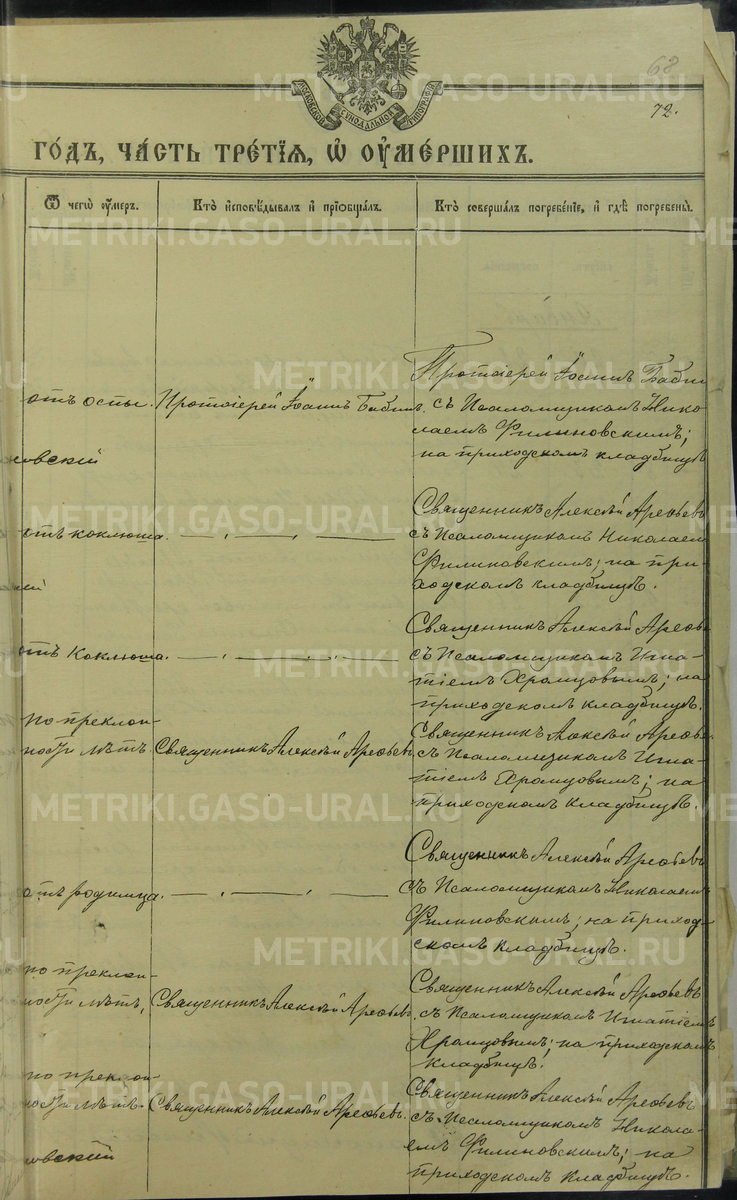 68
72.
МОСКОВСКОЙ СѴНОДАЛЬНОЙ ТИПОГРАФІИ
ГО́ДЪ, ЧА́СТЬ ТРЕ́ТЇѦ, Ѡ҆ ОУ҆МЕ́РШИХЪ.
Ѿ чегѡ̀ оу҆́меръ.
Кто̀ и҆сповѣ́дывалъ и҆ прїобща́лъ.
Кто̀ соверша́лъ погребе́нїе, и҆ гдѣ̀ погребены̀.
отъ оспы.
Протоіерей Іоаннъ Бабин.
Протоіерей Іоаннъ Бабин
съ Псаломщикомъ Нико-
лаемъ Филиновскимъ;
на приходскомъ кладбищѣ
новскій
отъ коклюша.
Священникъ Алексѣй Арефьевъ
съ Псаломщикомъ Николаем
Филиновскимъ; на при-
ходскомъ кладбищѣ.
отъ Коклюша.
Священникъ Алексѣй Арефье
съ Псаломщикомъ Игна-
тіемъ Храмцовымъ; на
приходскомъ кладбищѣ.
по преклон-
ности лѣтъ
Священникъ Алексѣй Арефьевъ
Священникъ Алексѣй Арефье
съ Псаломщикомъ Игна-
тіемъ Храмцовымъ; на
приходскомъ кладбищѣ.
отъ родимца.
Священникъ Алексѣй Арефьевъ
съ Псаломщикомъ Николаем
Филиновскимъ; на приход-
скомъ кладбищѣ.
по преклон-
ности лѣтъ,
Священникъ Алексѣй Арефьевъ
Священникъ Алексѣй Арефьевъ
съ Псаломщикомъ Игнатіемъ
Храмцовымъ; на приходскомъ
кладбищѣ.
по преклон-
ности лѣтъ.
Священникъ Алексѣй Арефьевъ.
Священникъ Алексѣй Арефьевъ
съ Псаломщикомъ Никола-
емъ Филиновскимъ; на
приходскомъ кладбищѣ.
новскій
METRIKI.GASO-URAL.RU